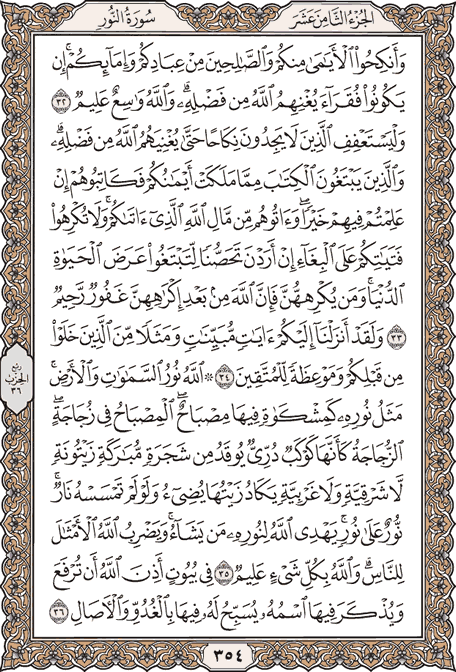 سُورَةُ النُّورِ الجُزْءُ الثَّامِنَ عَشَرَ
وَأَنكِحُوا۟ ٱلْأَيَـٰمَىٰ مِنكُمْ وَٱلصَّـٰلِحِينَ مِنْ عِبَادِكُمْ وَإِمَآئِكُمْ ۚ إِن
يَكُونُوا۟ فُقَرَآءَ يُغْنِهِمُ ٱللَّهُ مِن فَضْلِهِۦ ۗ وَٱللَّهُ وَٰسِعٌ عَلِيمٌ ٣٢
وَلْيَسْتَعْفِفِ ٱلَّذِينَ لَا يَجِدُونَ نِكَاحًا حَتَّىٰ يُغْنِيَهُمُ ٱللَّهُ مِن فَضْلِهِۦ ۗ
وَٱلَّذِينَ يَبْتَغُونَ ٱلْكِتَـٰبَ مِمَّا مَلَكَتْ أَيْمَـٰنُكُمْ فَكَاتِبُوهُمْ إِنْ
عَلِمْتُمْ فِيهِمْ خَيْرًا ۖ وَءَاتُوهُم مِّن مَّالِ ٱللَّهِ ٱلَّذِىٓ ءَاتَىٰكُمْ ۚ وَلَا تُكْرِهُوا۟
فَتَيَـٰتِكُمْ عَلَى ٱلْبِغَآءِ إِنْ أَرَدْنَ تَحَصُّنًا لِّتَبْتَغُوا۟ عَرَضَ ٱلْحَيَوٰةِ
ٱلدُّنْيَا ۚ وَمَن يُكْرِههُّنَّ فَإِنَّ ٱللَّهَ مِنۢ بَعْدِ إِكْرَٰهِهِنَّ غَفُورٌ رَّحِيمٌ
٣٣ وَلَقَدْ أَنزَلْنَآ إِلَيْكُمْ ءَايَـٰتٍ مُّبَيِّنَـٰتٍ وَمَثَلًا مِّنَ ٱلَّذِينَ خَلَوْا۟
مِن قَبْلِكُمْ وَمَوْعِظَةً لِّلْمُتَّقِينَ ٣٤ ۞ ٱللَّهُ نُورُ ٱلسَّمَـٰوَٰتِ وَٱلْأَرْضِ ۚ
رُبْعُ
الحِزْبِ
٣٦
مَثَلُ نُورِهِۦ كَمِشْكَوٰةٍ فِيهَا مِصْبَاحٌ ۖ ٱلْمِصْبَاحُ فِى زُجَاجَةٍ ۖ
ٱلزُّجَاجَةُ كَأَنَّهَا كَوْكَبٌ دُرِّىٌّ يُوقَدُ مِن شَجَرَةٍ مُّبَـٰرَكَةٍ زَيْتُونَةٍ
لَّا شَرْقِيَّةٍ وَلَا غَرْبِيَّةٍ يَكَادُ زَيْتُهَا يُضِىٓءُ وَلَوْ لَمْ تَمْسَسْهُ نَارٌ ۚ
نُّورٌ عَلَىٰ نُورٍ ۗ يَهْدِى ٱللَّهُ لِنُورِهِۦ مَن يَشَآءُ ۚ وَيَضْرِبُ ٱللَّهُ ٱلْأَمْثَـٰلَ
لِلنَّاسِ ۗ وَٱللَّهُ بِكُلِّ شَىْءٍ عَلِيمٌ ٣٥ فِى بُيُوتٍ أَذِنَ ٱللَّهُ أَن تُرْفَعَ
وَيُذْكَرَ فِيهَا ٱسْمُهُۥ يُسَبِّحُ لَهُۥ فِيهَا بِٱلْغُدُوِّ وَٱلْـَٔاصَالِ ٣٦
٣٥٤